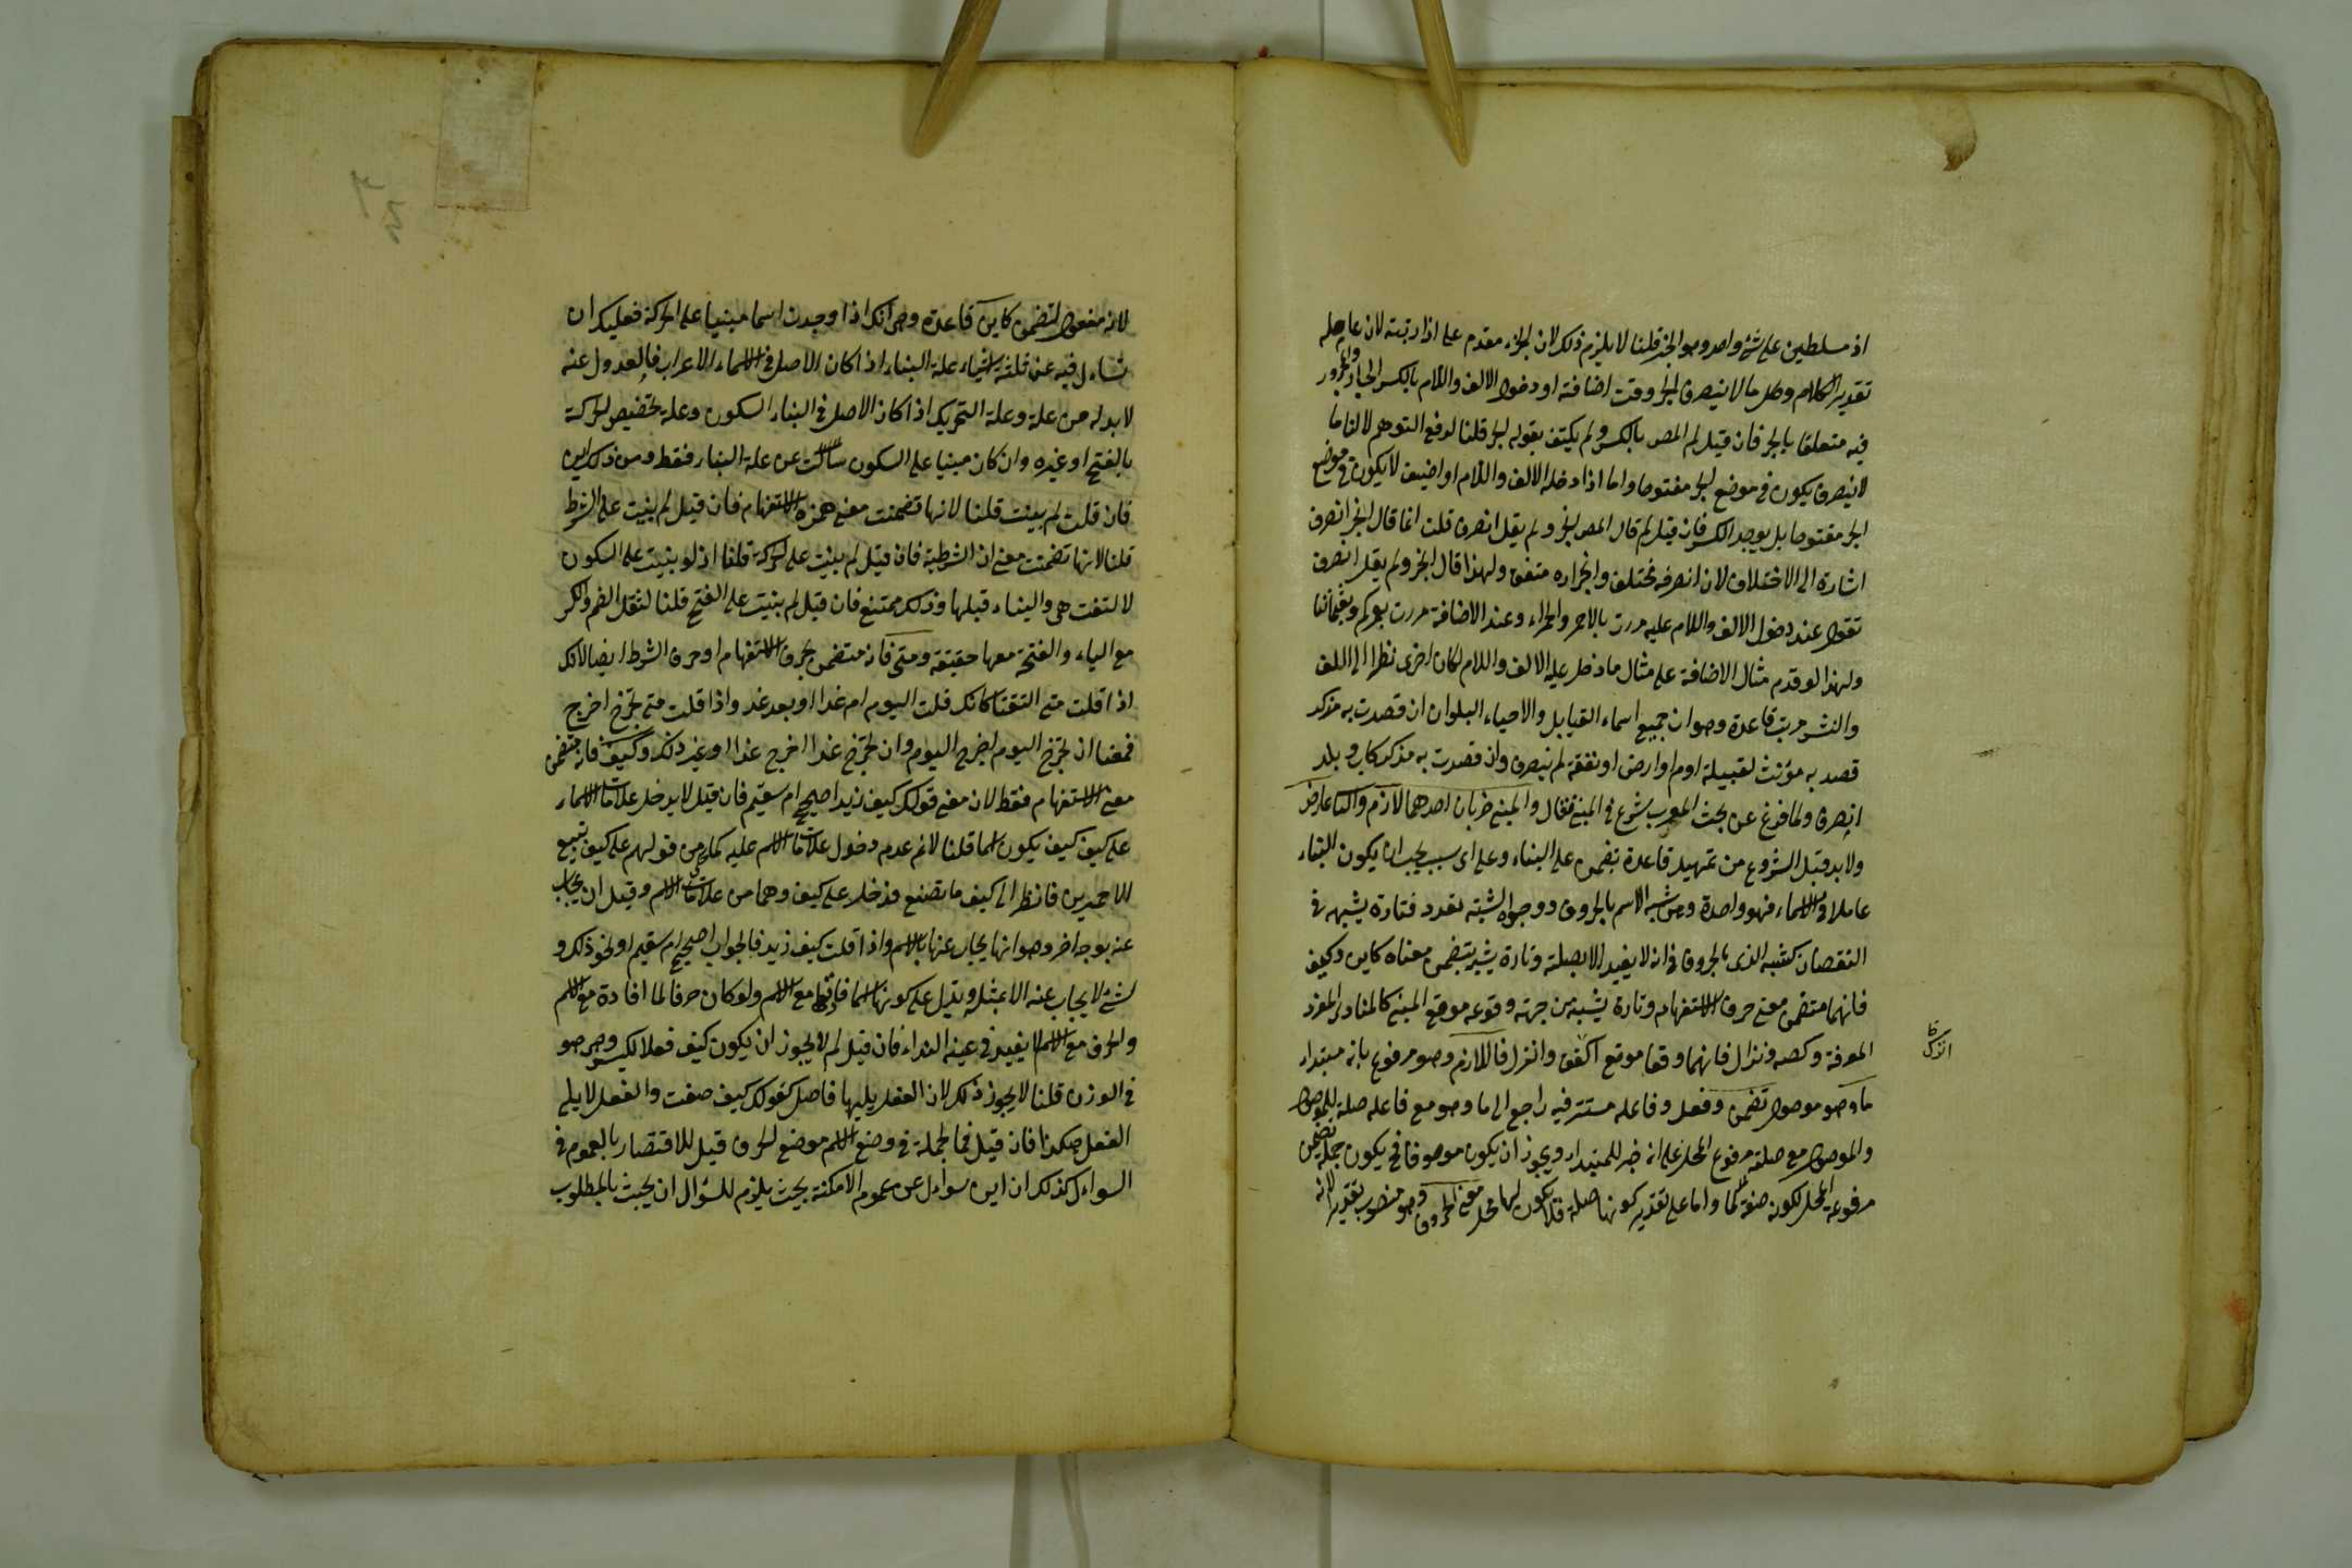 اذ مسلطين على شئ واحد وهو الجر قلنا لا يلزم ذلك لان الجزء مقدم على اذا رتبته لان عامله
تقدير الكلام وكل ما لا ينصرف انجر وقت اضافته او دخول الالف واللام بالكسر الجار والمجرور
فيه متعلقا بالجر فان قيل لم المص بالكسر ولم يكتف بقوله انجر قلنا لدفع التوهم لانا ما
لا ينصرف يكون في موضع الجر مفتوحا واما اذا دخله الالف واللام او اضيف لا يكون في موضع
الجر مفتوحا بل يوجد الكسر فان قيل لم قال المص انجر ولم يقل انصرف قلت انما قال انجر انصرف
اشارة الى الاختلاف لان انصرافه مختلف وانجراره متفق ولهذا قال انجر ولم يقل انصرف
تقول عند دخول الالف واللام عليه مررت بالاحمر والحمراء وعند الاضافة مررت بعمركم وبعثماننا
ولهذا لو قدم مثال الاضافة على مثال ما دخل عليه الالف واللام لكان احرى نظرا الى اللف
والنشر مرتب قاعدة وهو ان جميع اسماء القبايل والاحياء البلدان ان قصدت به مذكر
قصد به مؤنث لقبيلة او ام او ارض او بقعة لم ينصرف وان قصدت به مذكر كاب وبلد
انصرف ولما فرغ عن بحث المعرب شرع في المبنى فقال والمبنى ضربان احدهما لازم والثا عارض
ولابد قبل الشروع من تمهيد قاعدة تضمن على البناء وعلى اى سبب يجب ان يكون البناء
عاملا فى الاسماء فهو واحدة وهى شبه الاسم بالحروف ووجوه الشبه تعدد فتارة يشبهه في
النقصان كشبه الذى بالحروف فى انه لا يفيد الا بصلته وتارة يشبه بتضمن معناه كاين وكيف
فانهما متضمن معنى حرف الاستفهام وتارة يشبه من جهة وقوعه موقع المبنى كالمنادى المفرد
المعرفة وكصه ونزال فانهما وقعا موقع اكفف وانزل فاللازم وهو مرفوع بانه مبتداء
ما وهو موصول تضمن وفعل وفاعله مستتر فيه راجع الى ما وهو مع فاعله صلة للموصول
والموصول مع صلته مرفوع المحل على انه خبر للمبتداء ويجوز ان يكون موصوفا فح يكون جملة تضمن
مرفوعة المحل لكونه صفة لما واما على تقدير كونها صلة فلا يكون لها محل معنى الحروف وهو منصوب بتقدير لانه
كا
انزل
لانه مفعول لتضمن كاين قاعدة وهى انك اذا وجدت اسما مبنيا على الحركة فعليك ان
تساءل فيه عن ثلثة اشياء علة البناء اذا كان الاصل فى الاسماء الاعراب فالعدول عنه
لابد له من علة وعلة التحريك اذا كان الاصل فى البناء السكون وعلة تخصيص الحركة
بالفتح او غيره وان كان مبنيا على السكون سألت عن علة البناء فقط ومن ذلك اين
فان قلت لم بينت قلنا لانها تضمنت معنى همزة الاستفهام فان قيل لم بنيت على الشرط
قلنا لانها تضمنت معنى ان الشرطية فان قيل لم بنيت على الحركة قلنا اذ لو بنيت على السكون
لالتقت هى والياء قبلها وذلك ممتنع فان قيل لم بنيت على الفتح قلنا لثقل الضم والكسر
مع الياء والفتحة معها خفيفة ومتى فانه متضمن بحرف الاستفهام او حرف الشرط ايضا لانك
اذا قلت متى التقتا كانك قلت اليوم ام غدا او بعد غد واذا قلت متى تخرج اخرج
فمعنا ان تخرج اليوم اخرج اليوم وان تخرج غدا اخرج غدا او غير ذلك وكيف فانه متضمن
معنى الاستفهام فقط لان معنى قولك كيف زيد اصحيح ام سقيم فان قيل لا يدخل علامات الاسماء
على كيف كيف يكون اسما قلنا لانم عدم دخول علامات الاسم عليه كما من قولهم على كيف تبيع
الاحمرين فانظر الى كيف ما تصنع فدخل على كيف وهما من علامات الاسم وقيل ان يجاب
عنه بوجه اخر وهو انها يجاب عنها بالاسم واذا قلت كيف زيد فالجواب اصحيح ام سقيم او نحو ذلك و
لشئ لا يجاب عنه الا بمثله ويدل على كونها اسما فادتها مع الاسم ولو كان حرفا لما افادة مع الاسم
والحرف مع الاسم لا يفيد فى غير النداء فان قيل لم لا يجوز ان يكون كيف فعلا كليس وهو هو
فى الوزن قلنا لا يجوز ذلك لان الفعل يليها فاصل كقولك كيف صنعت والفعل لا يلى
الفعل هكذا فان قيل فما الجملة فى وضع الاسم موضع الحرف قيل للاقتصار بالعموم فى
السواءل كذلك ان اين سواءل عن عموم الامكنة بحيث يلزم للسؤال ان يجيب بالمطلوب